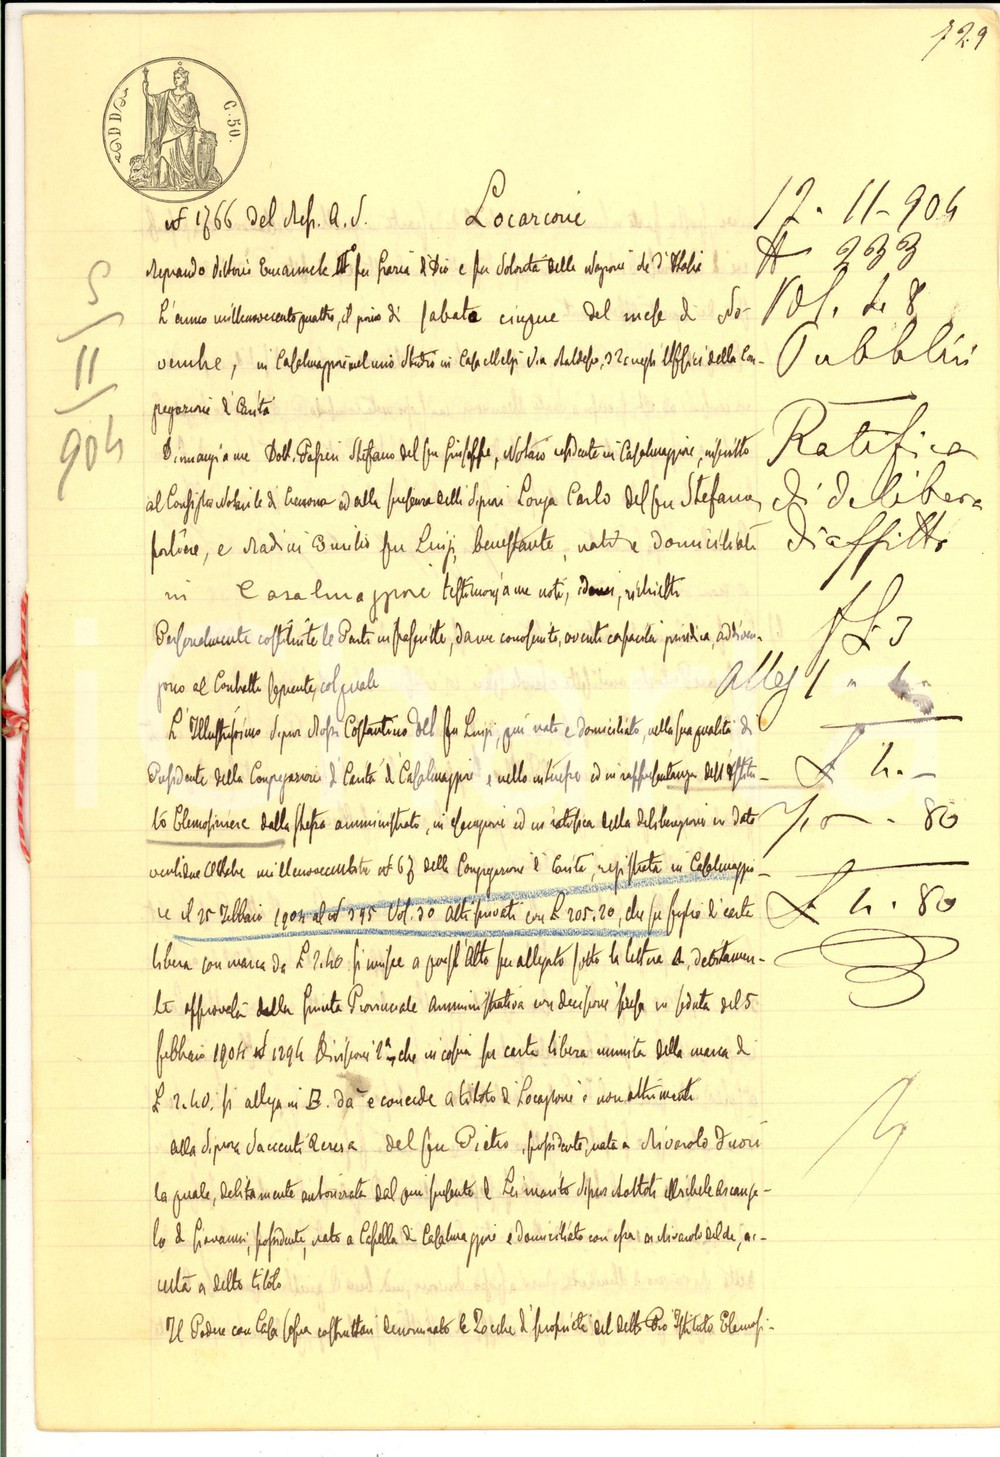 729
C. 50.
N 1766 del Rep. A. S. Locazione
Regnando Vittorio Emanuele III° per grazia di Dio e per volontà della Nazione Re d'Italia
L'anno millenovecentoquattro, il giorno di sabato cinque del mese di No-
vembre, in Casalmaggiore nel mio Studio in Casa Melzi Via negli Uffici della Con-
gregazione di Carità
Dinnanzi a me Dott. Stefano del fu Giuseppe, Notaio residente in Casalmaggiore, inscritto
al Consiglio Notarile di Cremona ed alla presenza delli Signori Longa Carlo del fu Stefano,
portiere, e Emilio fu Luigi, benestante, nati e domiciliati
in Casalmaggiore testimoni a me noti, idonei, richiesti
Personalmente costituite le Parti infrascritte, da me conosciute, aventi capacità giuridica, addiven-
gono al Contratto seguente, col quale
L'Illustrissimo Signor Rossi Costantino del fu Luigi, qui nato e domiciliato, nella sua qualità di
Presidente della Congregazione di Carità di Casalmaggiore e nello interesse ed in rappresentanza dell'Istitu-
to Elemosiniere dalla stessa amministrato, in esecuzione ed in ratifica della deliberazione in data
ventidue Ottobre millenovecentotre N 67 della Congregazione di Carità, registrata in Casalmaggio-
re il 25 Febbraio 1904 al N 395 Vol. 30 Atti privati con L 205.20, che su foglio di carta
libera con marca da L 2.40 si unisce a quest'Atto per allegato sotto la lettera A, debitamen-
te approvata dalla Giunta Provinciale Amministrativa con decisione presa in seduta del 5
febbraio 1904 N 1294 Divisione 2a, che in copia su carta libera munita della marca di
L 2.40, si allega in B. dà e concede a titolo di Locazione e non altrimenti
alla Signora Saccenti Teresa del fu Pietro, possidente, nata a Rivarolo Fuori
la quale, debitamente autorizzata dal qui presente di Lei marito Signor Michele Arcange-
lo di Giovanni, possidente, nato a Casella di Casalmaggiore e domiciliato con essa a Rivarolo del Re, ac-
cetta a detto titolo
Il Podere con Casa sopra costruttavi denominato Le Zocche di proprietà del detto Pio Istituto Elemosi-
5
11
904
17-11-904
N 233
Vol. 48
Pubblici
Ratifica
di delibera
d'affitto
All. 1
L 4.-
- . 80
L 4.80